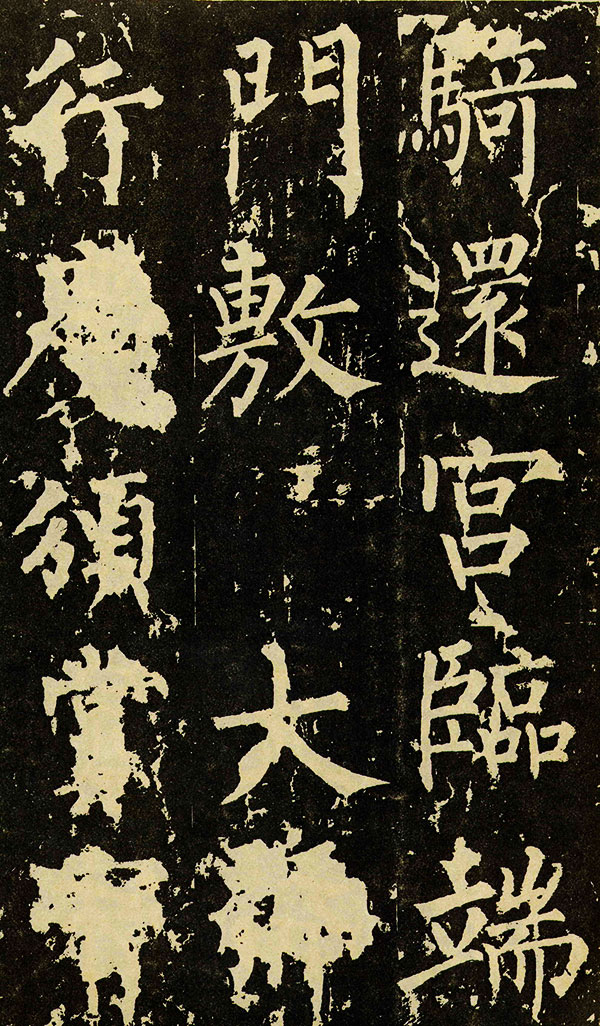 騎還宮臨端
門敷大
行頒賞